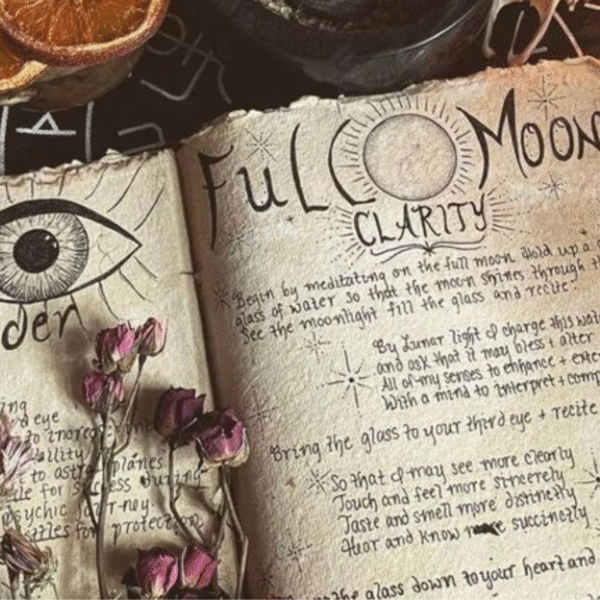 der
ing
d eye
to increase
ility
to astral planes
le for success during
psychic journey
ttles for protection
Full Moon
CLARITY
Begin by meditating on the full moon. Hold up a
glass of water so that the moon shines through
See the moonlight fill the glass and recite:
By Lunar light I charge this wat
and ask that it may bless + alter
All of my senses to enhance + exte
With a mind to interpret + comp
Bring the glass to your third eye + recite
So that I may see more clearly
Touch and feel more sincerely
Taste and smell more distinctly
Hear and know more succinctly
the glass down to your heart and